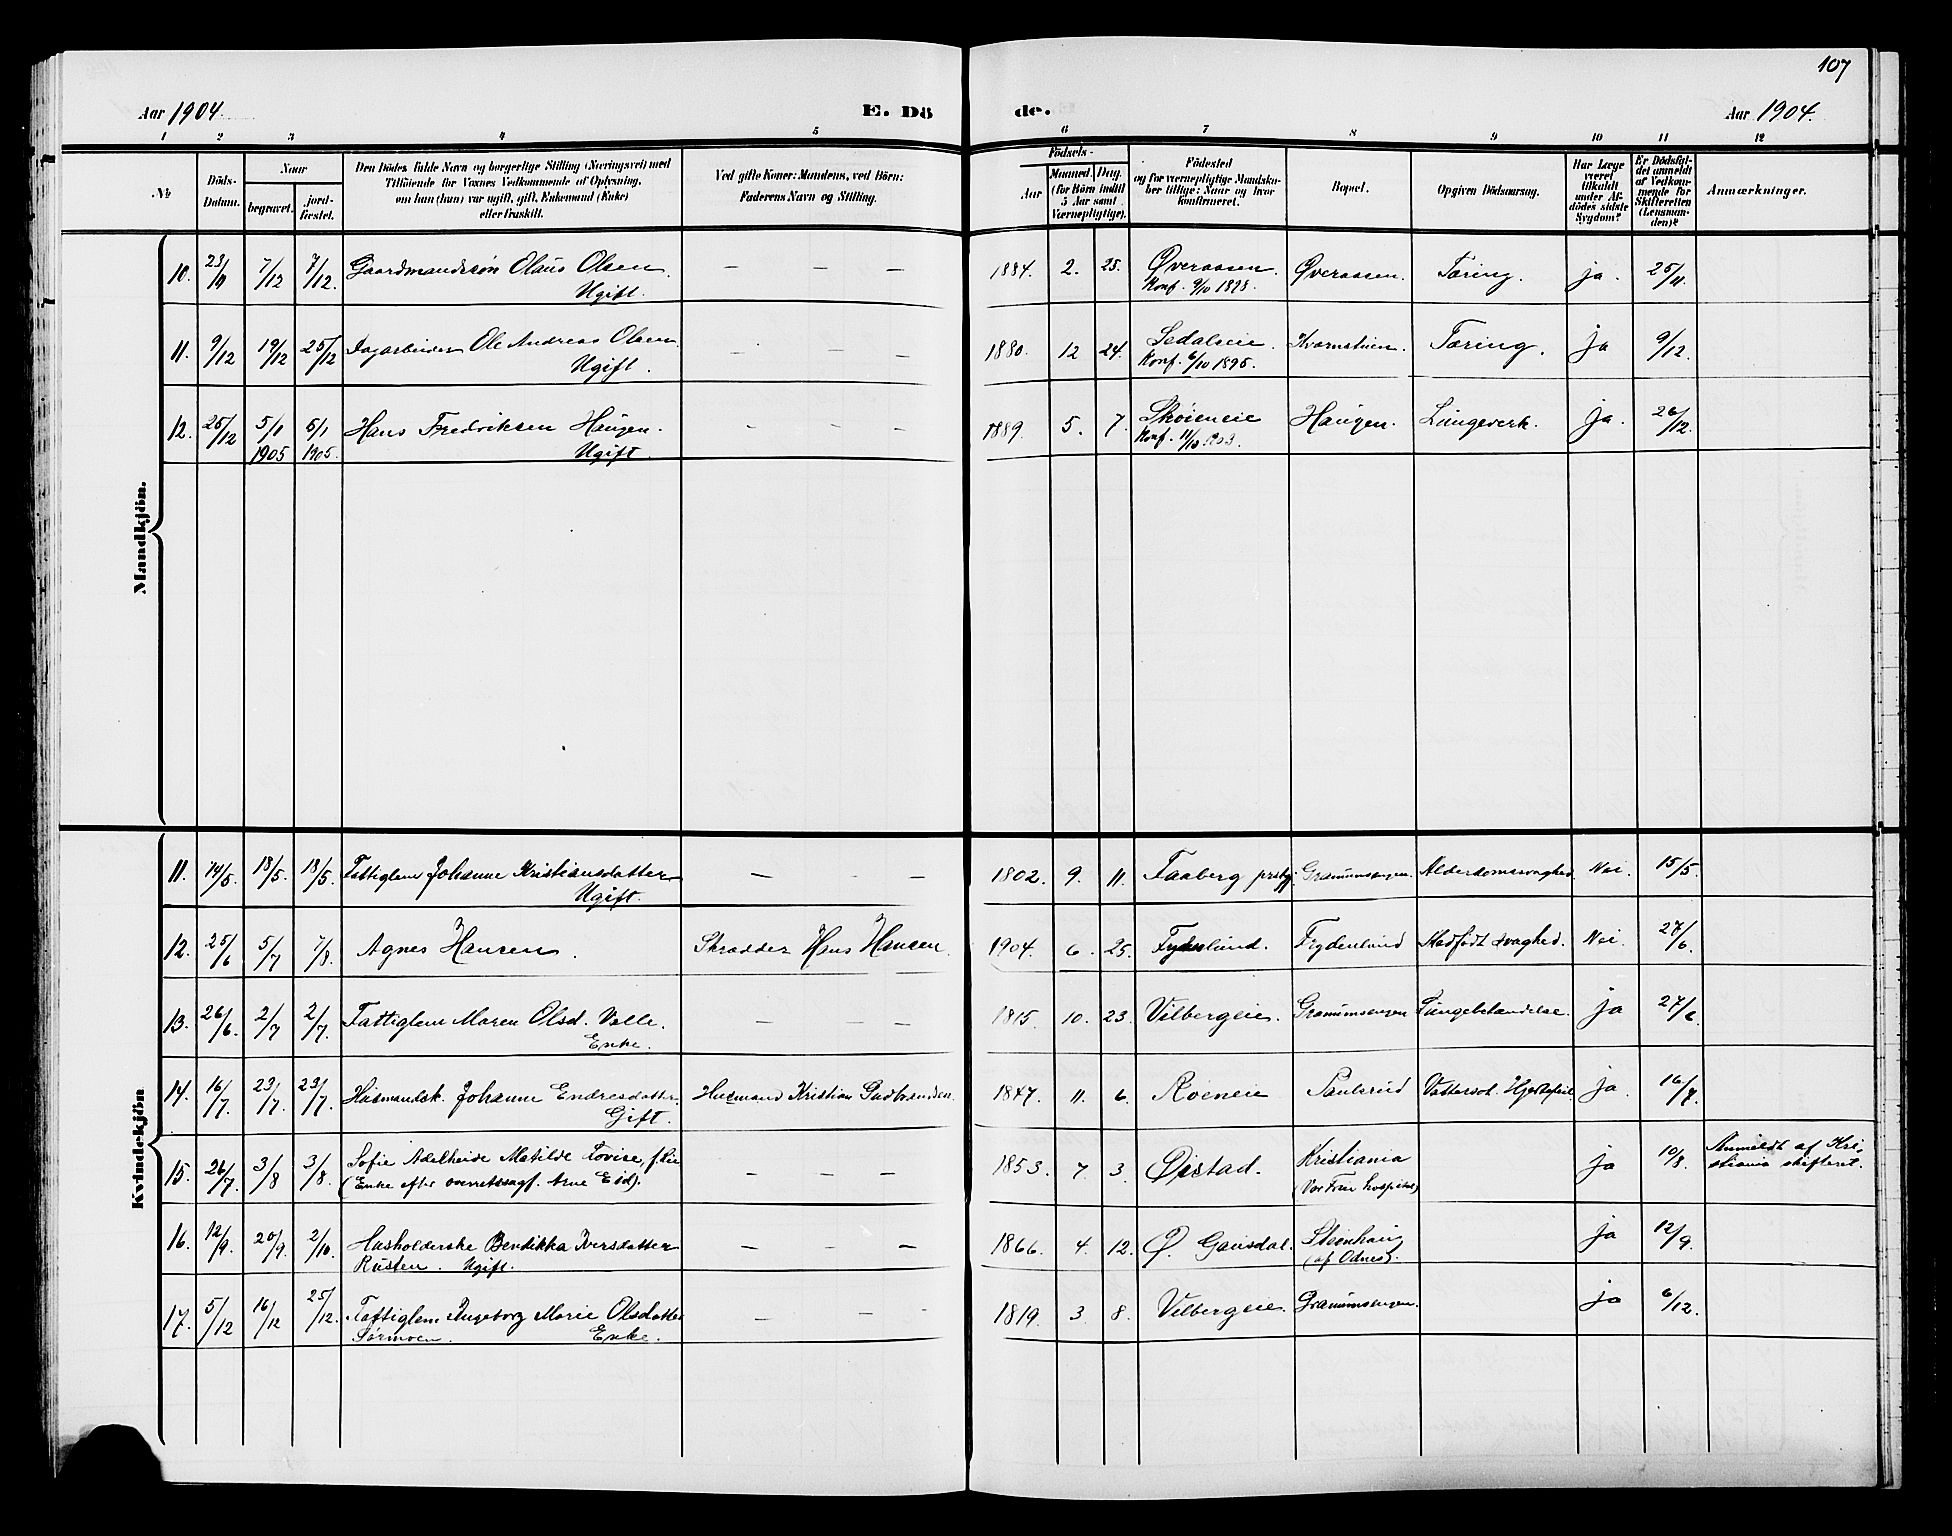 107
Aar 1904. E. Dö de. Aar 1904.
1 2 3 4 5 6 7 8 9 10 11 12
№
Döds-Datum.
Naar
begravet.
jord-fæstet.
Den Dödes fulde Navn og borgerlige Stilling (Næringsvei) med
Tilföiende for Voxnes Vedkommende af Oplysning,
om han (hun) var ugift, gift, Enkemand (Enke)
eller fraskilt.
Ved gifte Koner: Mandens, ved Börn:
Faderens Navn og Stilling.
Födsels-
Aar
Maaned. Dag.
(for Börn indtil
5 Aar samt
Værnepligtige).
Födested
og for værnepligtige Mandska-
ber tillige: Naar og hvor
konfirmeret.
Bopæl.
Opgiven Dödsaarsag.
Har Læge
været
tilkaldt
under Af-
dödes sidste
Sygdom?
Er Dödsfal-
det anmeldt
af Vedkom-
mende for
Skifteretten
(Lensman-
den)?
Anmærkninger.
Mandkjön.
10. 23/11 7/12 7/12. Gaardmandssön Olaus Olsen. — — — 1884. 2. 25. Överaasen. Överaasen. Tæring. ja. 25/11.
Ugift. Konf. 9/10 1898.
11. 9/12 19/12 25/12 Dagarbeider Ole Andreas Olsen — — — 1880. 12 24. Sedaleie. Kvernstuen. Tæring. ja 9/12.
Ugift. Konf. 6/10 1895.
12. 25/12 5/1 5/1 Hans Fredriksen Haugen. — — — 1889. 5. 7. Sköieneie Haugen. Lungeverk. ja. 26/12.
1905 1905. Ugift. Konf. 11/10 1903.
Kvindekjön
11. 14/5. 18/5. 18/5. Fattiglem Johanne Kristiansdatter — — — 1802. 9. 11. Faaberg prstgj. Granumsengen. Alderdomssvaghed. Nei. 15/5.
Ugift.
12. 25/6 5/7 7/8. Agnes Hansen. Skrædder Hans Hansen. 1904. 6. 25. Frydenlund. Frydenlund Medfödt svaghed. Nei. 27/6.
13. 26/6. 2/7 2/7. Fattiglem Maren Olsd. Valle. — — — 1815. 10. 23. Vilbergeie. Granumsengen Lungebetændelse. ja 27/6
Enke.
14. 16/7. 23/7. 23/7. Husmandsk. Johanne Endresdatter. Husmand Kristian Gudbrandsen. 1847. 11. 6. Roeneie Paulsrud Vattersot. Hjertefeil. ja. 16/7.
Gift.
15. 26/7. 3/8 3/8. Sofie Adelheide Matilde Lovise, f. Lie — — — 1853. 7. 3. Öistad. Kristiania ja 10/8. Anmeldt af Kri-
(Enke efter overretssagf. Arne Eid). (Vor Frue Hospital) stiania skifteret.
16. 12/9. 20/9. 2/10. Husholderske Bendikka Iversdatter — — — 1866. 4. 12. Ö. Gausdal. Steenhaug ja 12/9.
Rusten. Ugift. (af Odnes).
17. 5/12 16/12 25/12. Fattiglem Ingeborg Marie Olsdatter — — — 1819. 3 8. Vilbergeie. Granumsengen. ja 6/12.
Sörmoen. Enke.